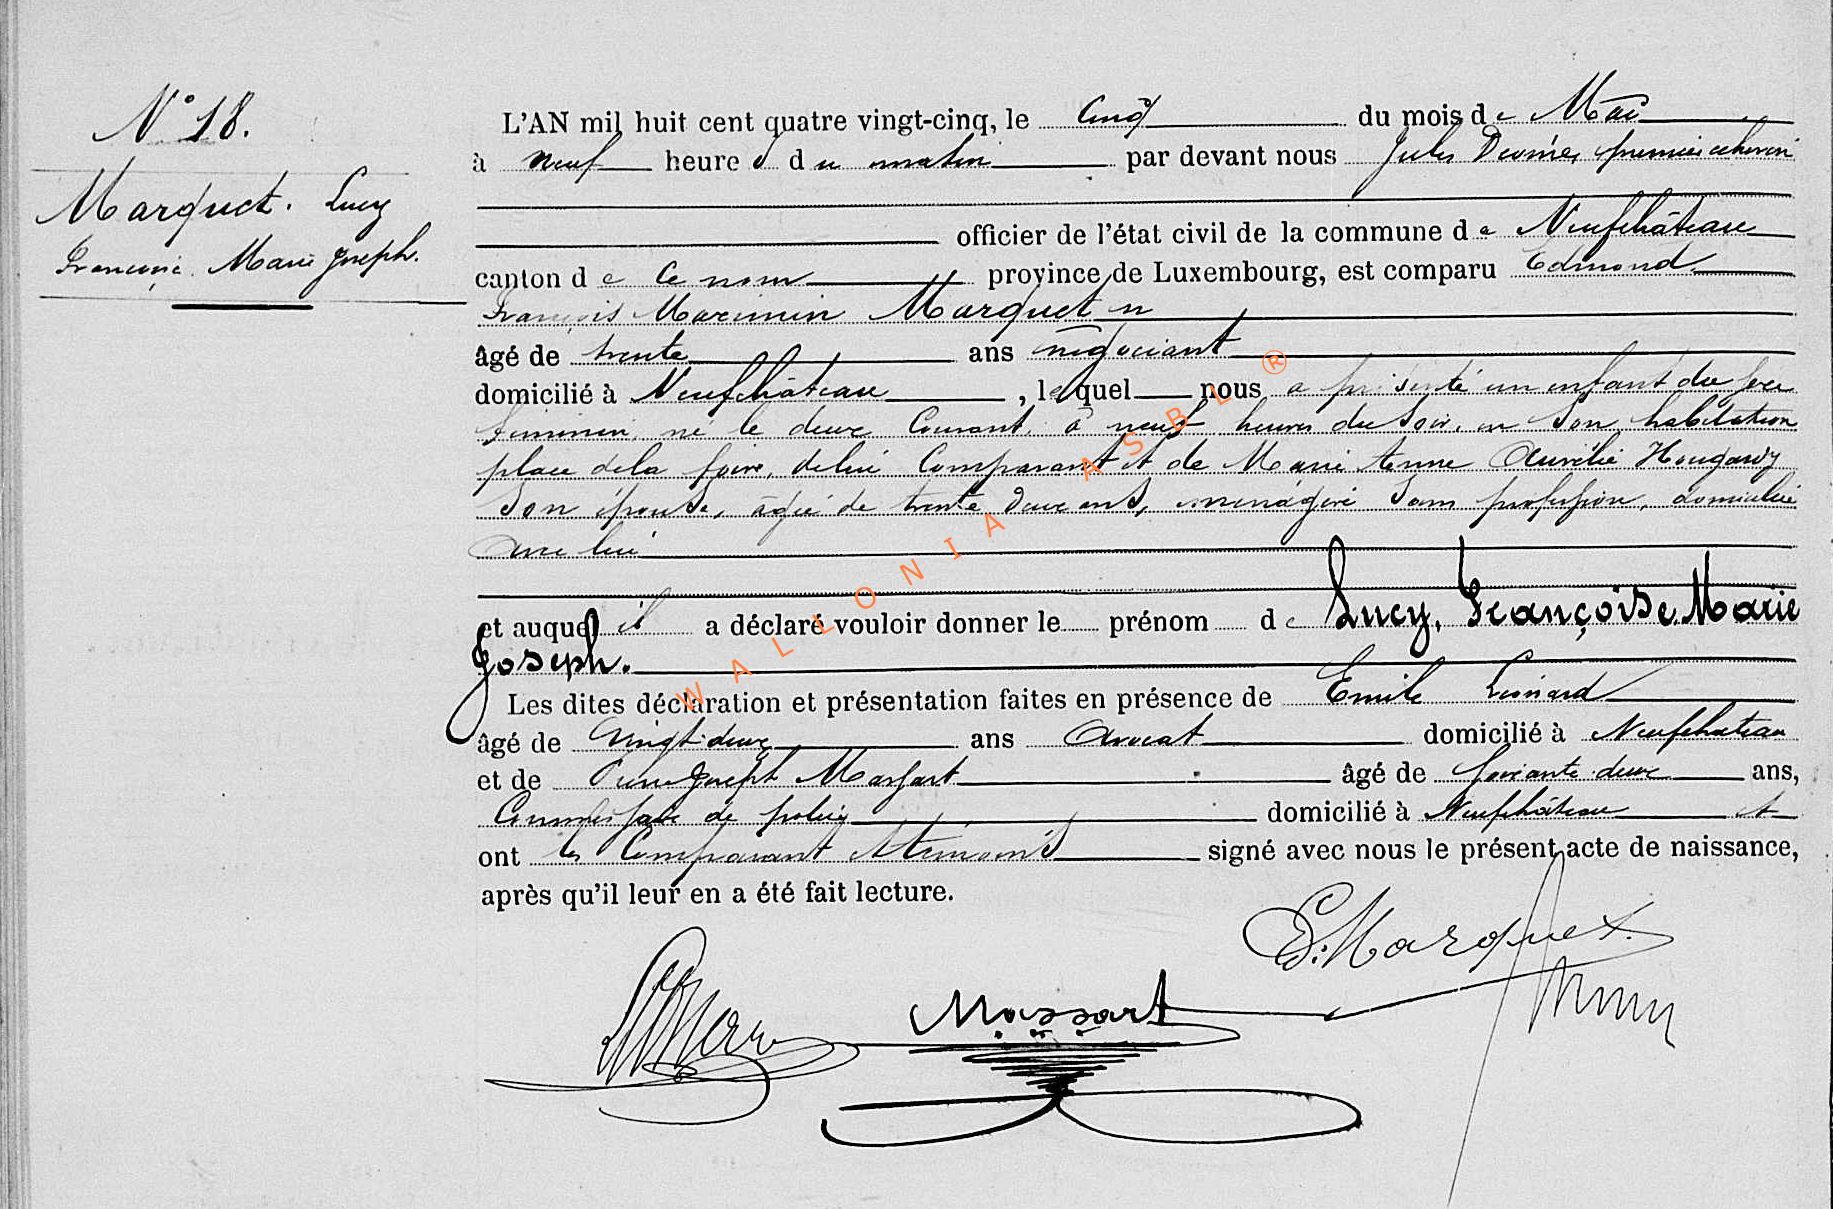 N° 18.
Marquet. Lucy
Françoise Marie Joseph.
L'AN mil huit cent quatre vingt-cinq, le Cinq du mois de Mai
à neuf heures du matin par devant nous Jules premier échevin
officier de l'état civil de la commune de Neufchâteau
canton de ce nom province de Luxembourg, est comparu Edmond
François Maximin Marquet
âgé de trente ans négociant
domicilié à Neufchâteau, lequel nous a présenté un enfant du sexe
féminin, né le deux Courant, à neuf heures du soir, en Son habitation
place de la foire, de lui Comparant et de Marie Anne Aurélie Hougardy
Son épouse, âgée de trente deux ans, ménagère Sans profession, domiciliée
avec lui
et auquel il a déclaré vouloir donner le prénom de Lucy, Françoise Marie
Joseph.
Les dites déclaration et présentation faites en présence de Emile Léonard
âgé de Vingt-deux ans Avocat domicilié à Neufchateau
et de Pierre Joseph Massart âgé de Soixante-deux ans,
Commissaire de police domicilié à Neufchâteau et
ont les Comparant et témoins signé avec nous le présent acte de naissance,
après qu'il leur en a été fait lecture.
E. Marquet.
Massart
WALLONIA ASBL ®